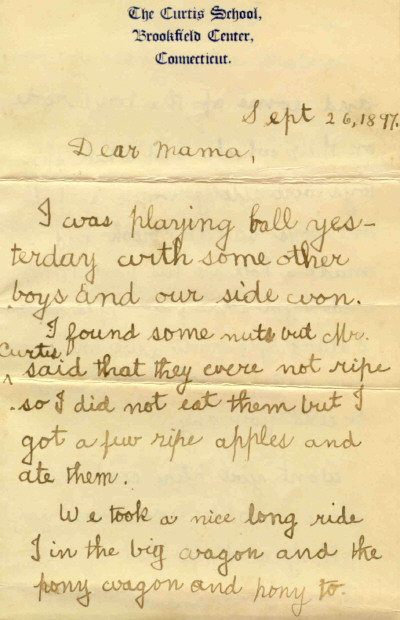 The Curtis School,
Brookfield Center,
Connecticut.
Sept 26, 1897.
Dear Mama,
I was playing ball yes-
terday with some other
boys and our side won.
I found some nuts but Mr.
Curtis
^ said that they were not ripe
so I did not eat them but I
got a few ripe apples and
ate them.
We took a nice long ride
I in the big wagon and the
pony wagon and pony to.